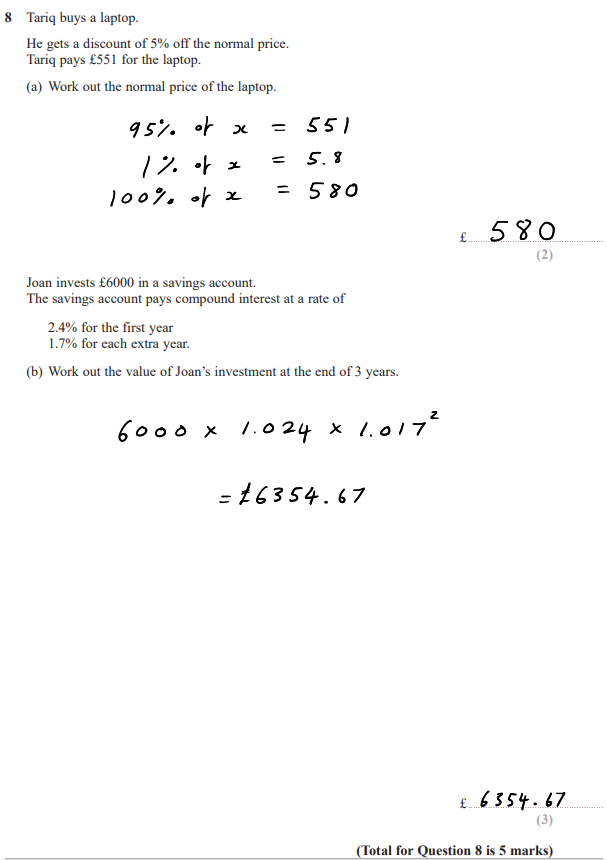 8 Tariq buys a laptop.
He gets a discount of 5% off the normal price.
Tariq pays £551 for the laptop.
(a) Work out the normal price of the laptop.
95% of x = 551
1% of x = 5.8
100% of x = 580
£ 580
(2)
Joan invests £6000 in a savings account.
The savings account pays compound interest at a rate of
2.4% for the first year
1.7% for each extra year.
(b) Work out the value of Joan's investment at the end of 3 years.
6000 × 1.024 × 1.017²
= £6354.67
£ 6354.67
(3)
(Total for Question 8 is 5 marks)